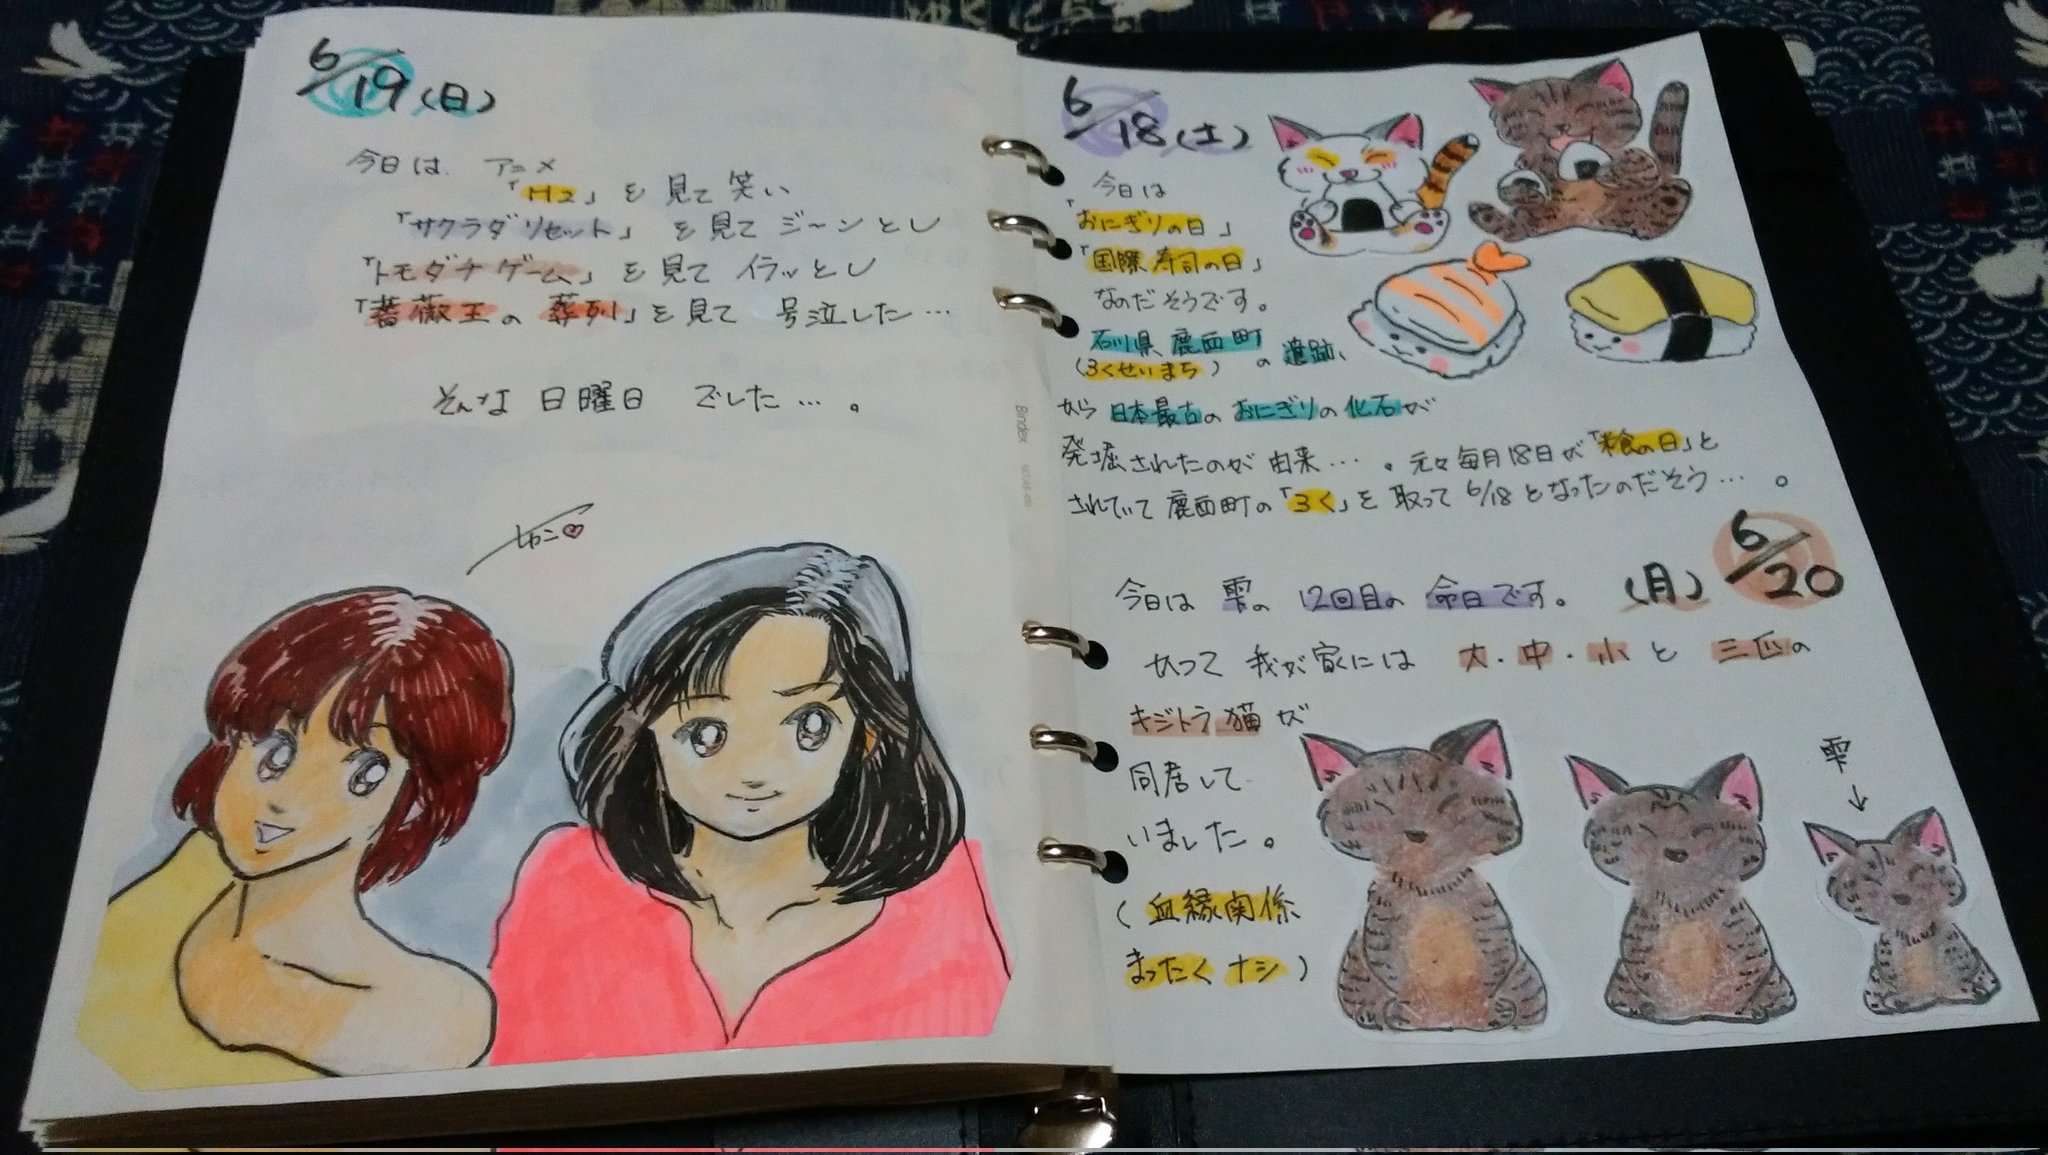 6/19(日)
今日は、アニメ
「H2」を見て笑い
「サクラダリセット」を見てジーンとし
「トモダチゲーム」を見てイラッとし
「薔薇王の葬列」を見て号泣した…
そんな日曜日でした…。
6/18(土)
今日は
「おにぎりの日」
「国際寿司の日」
なのだそうです。
石川県、鹿西町の遺跡、
(ろくせいまち)
から日本最古のおにぎりの化石が
発掘されたのが由来…。元々毎月18日が「米食の日」と
されていて鹿西町の「ろく」を取って6/18となったのだそう…。
6/20
(月)
今日は雫の12回目の命日です。
かつて我が家には大・中・小と三匹の
キジトラ猫が
同居して
いました。
(血縁関係
まったくナシ)
雫
↓
Bindex